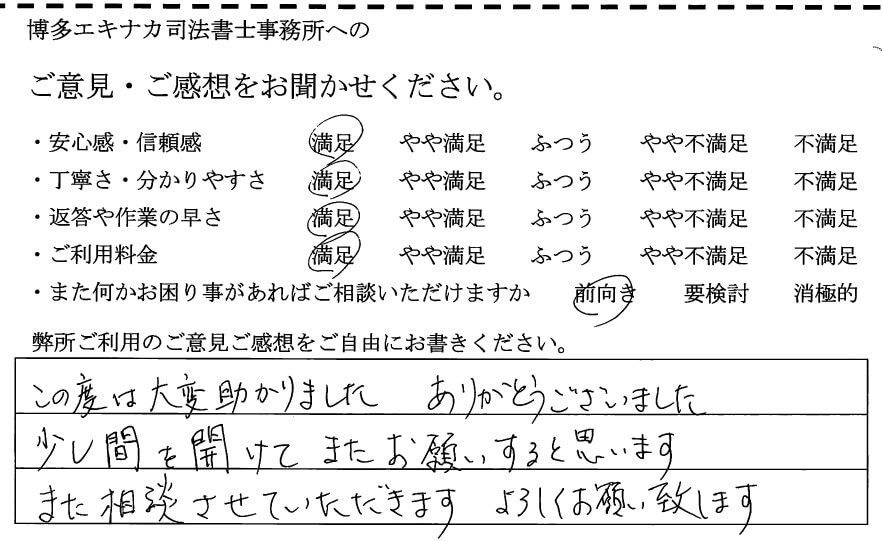 博多エキナカ司法書士事務所への
ご意見・ご感想をお聞かせください。
・安心感・信頼感 満足 やや満足 ふつう やや不満足 不満足
・丁寧さ・分かりやすさ 満足 やや満足 ふつう やや不満足 不満足
・返答や作業の早さ 満足 やや満足 ふつう やや不満足 不満足
・ご利用料金 満足 やや満足 ふつう やや不満足 不満足
・また何かお困り事があればご相談いただけますか 前向き 要検討 消極的
弊所ご利用のご意見ご感想をご自由にお書きください。
この度は大変助かりました ありがとうございました
少し間を開けてまたお願いすると思います
また相談させていただきます よろしくお願い致します